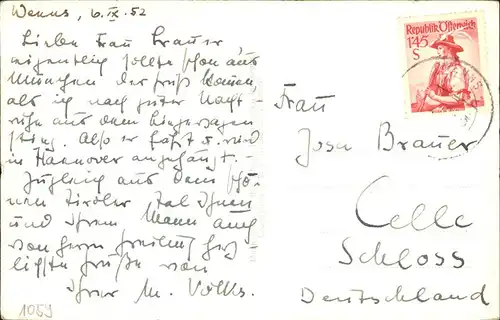 Wenns, 6.IX.52
Liebe Frau Brauer
eigentlich sollte schon aus
München der Gruß kommen,
als ich nach guter Nacht-
ruhe aus dem
stieg. Also er fährt u. wird
in Hannover angehängt. -
Zugleich aus dem schö-
nen Tiroler Tal Ihnen
und Ihrem Mann auch
von herz-
lichste Grüße von
Ihrer M. Volks.
1059
Republik Österreich
1.45
S
Frau
Josa Brauer
Celle
Schloss
Deutschland